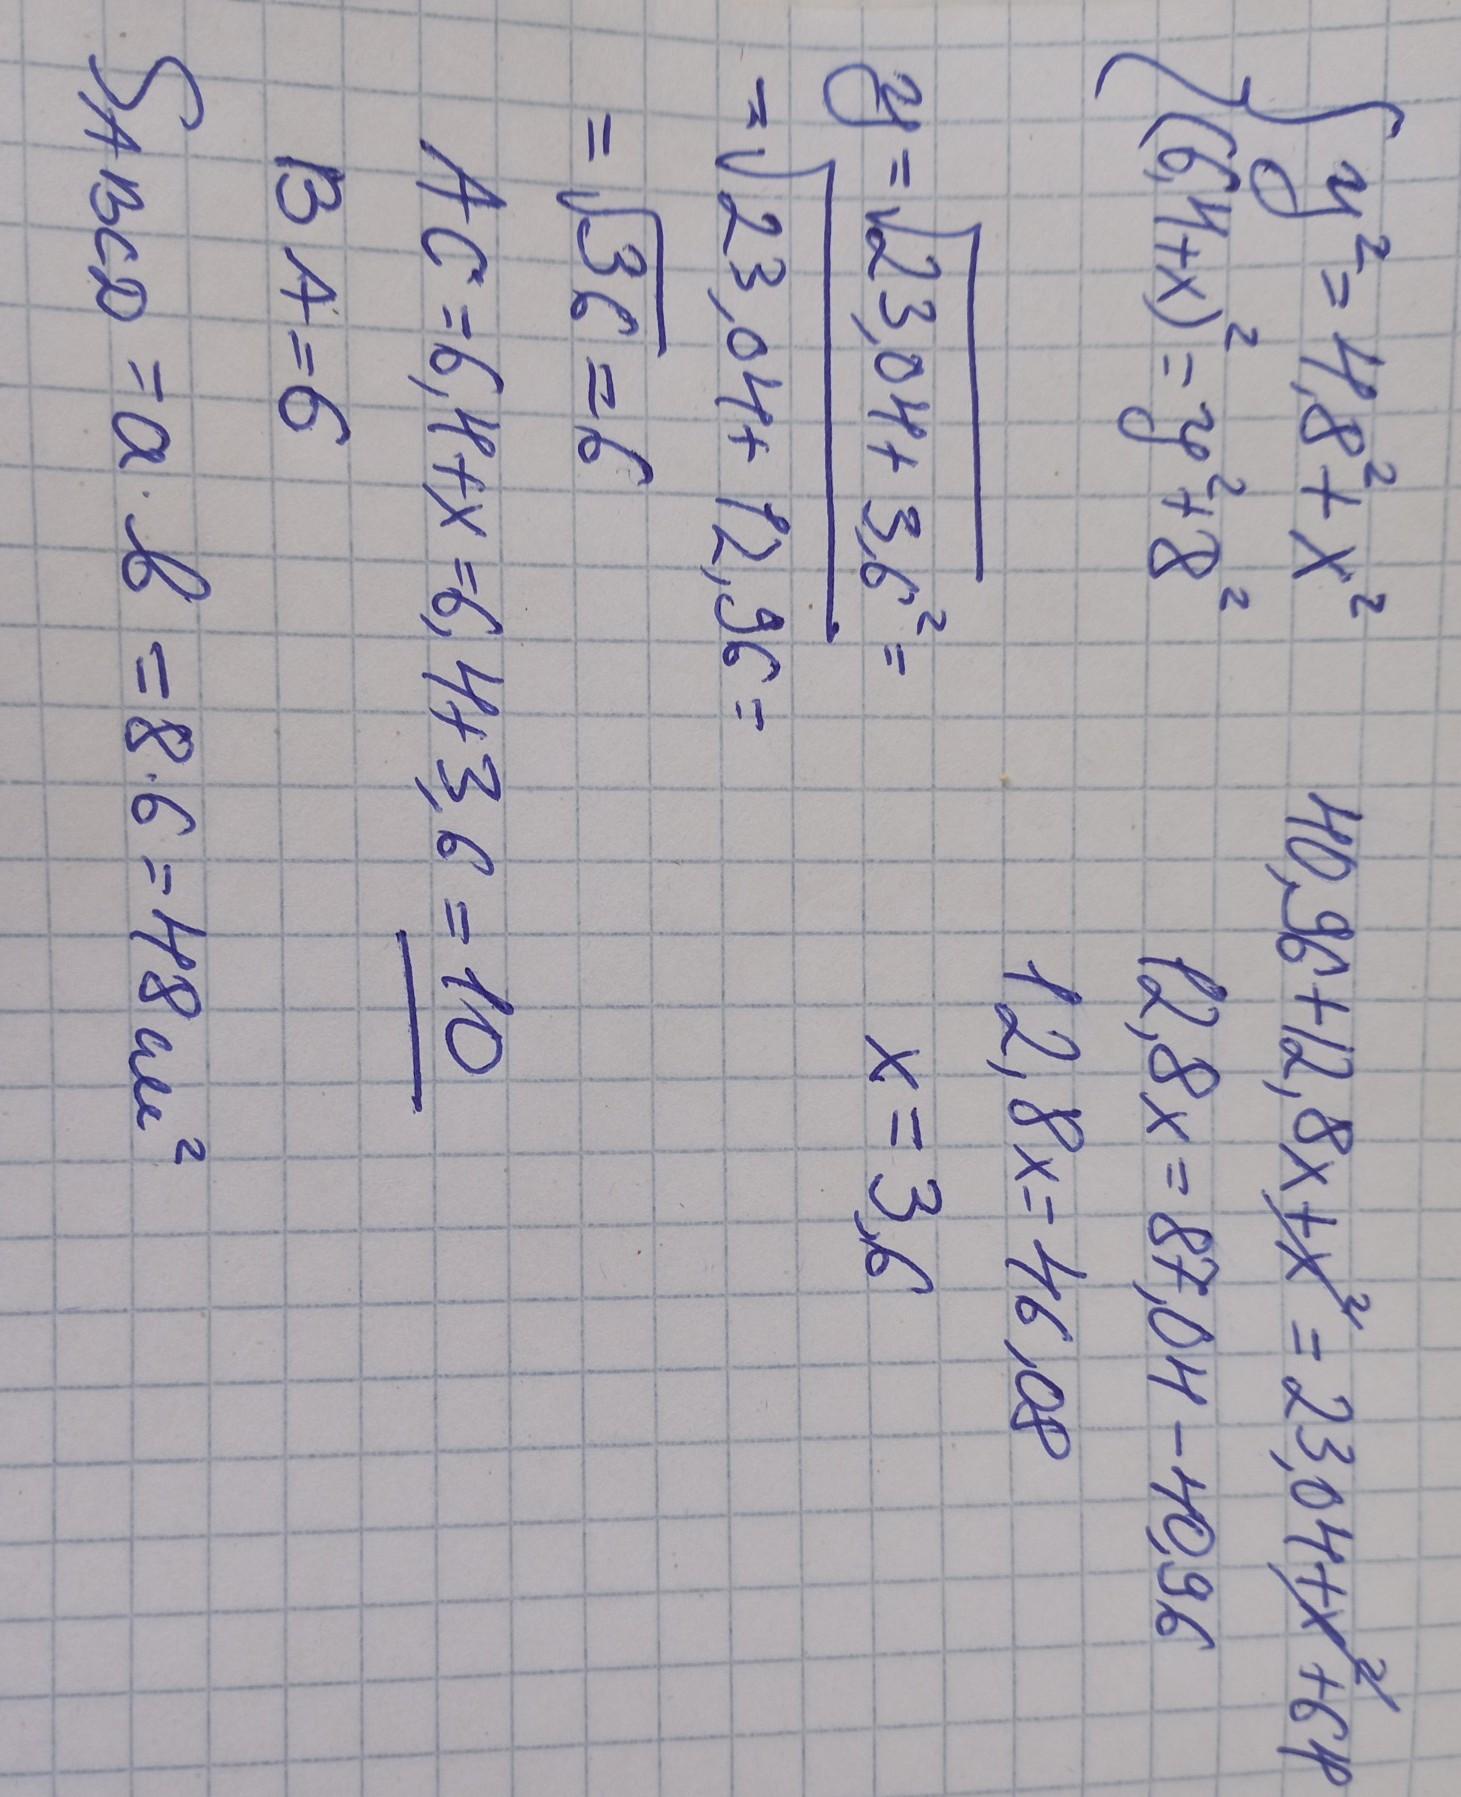 { y² = 4,8² + x²
(6,4+x)² = y² + 8²
40,96+12,8x+x² = 23,04+x²+64
12,8x = 87,04 - 40,96
12,8x = 46,08
x = 3,6
y = √23,04 + 3,6² =
= √23,04 + 12,96 =
= √36 = 6
AC = 6,4+x = 6,4+3,6 = 10
BA = 6
SABCD = a · b = 8 · 6 = 48 см²